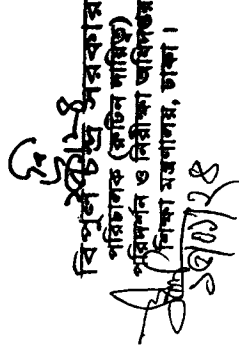 বিপুল চন্দ্র সরকার
পরিচালক (রুটিন দায়িত্ব)
পরিদর্শন ও নিরীক্ষা অধিদপ্তর
শিক্ষা মন্ত্রণালয়, ঢাকা।